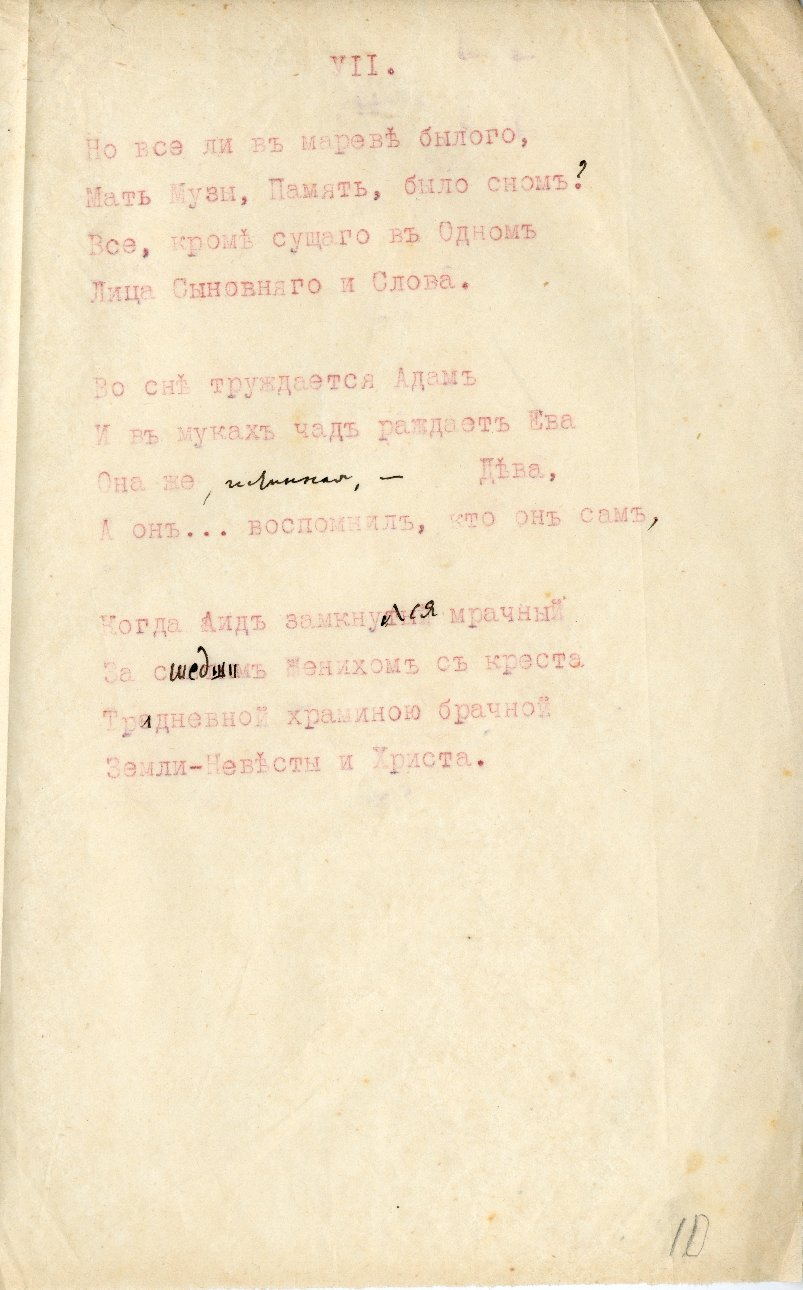 VII.
Но все ли въ маревѣ былого,
Мать Музы, Память, было сномъ?
Все, кромѣ сущаго въ Одномъ
Лица Сыновняго и Слова.
Во снѣ труждается Адамъ
И въ мукахъ чадъ раждаетъ Ева
Она же, истинная, — Дѣва,
А онъ... воспомнилъ, кто онъ самъ,
Когда Аидъ замкнулся мрачный
За сшедшимъ Женихомъ съ креста
Тридневной храминою брачной
Земли-Невѣсты и Христа.
10